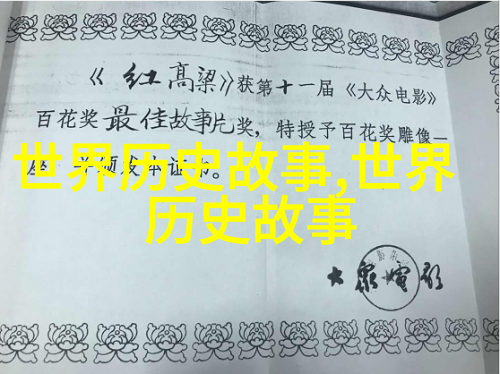 《红高粱》获第十一届《大众电影》
百花奖最佳故事片奖，特授予百花奖雕像一
座，并颁发本证书。
世界历史故事,世界
历史故事
大眾電影